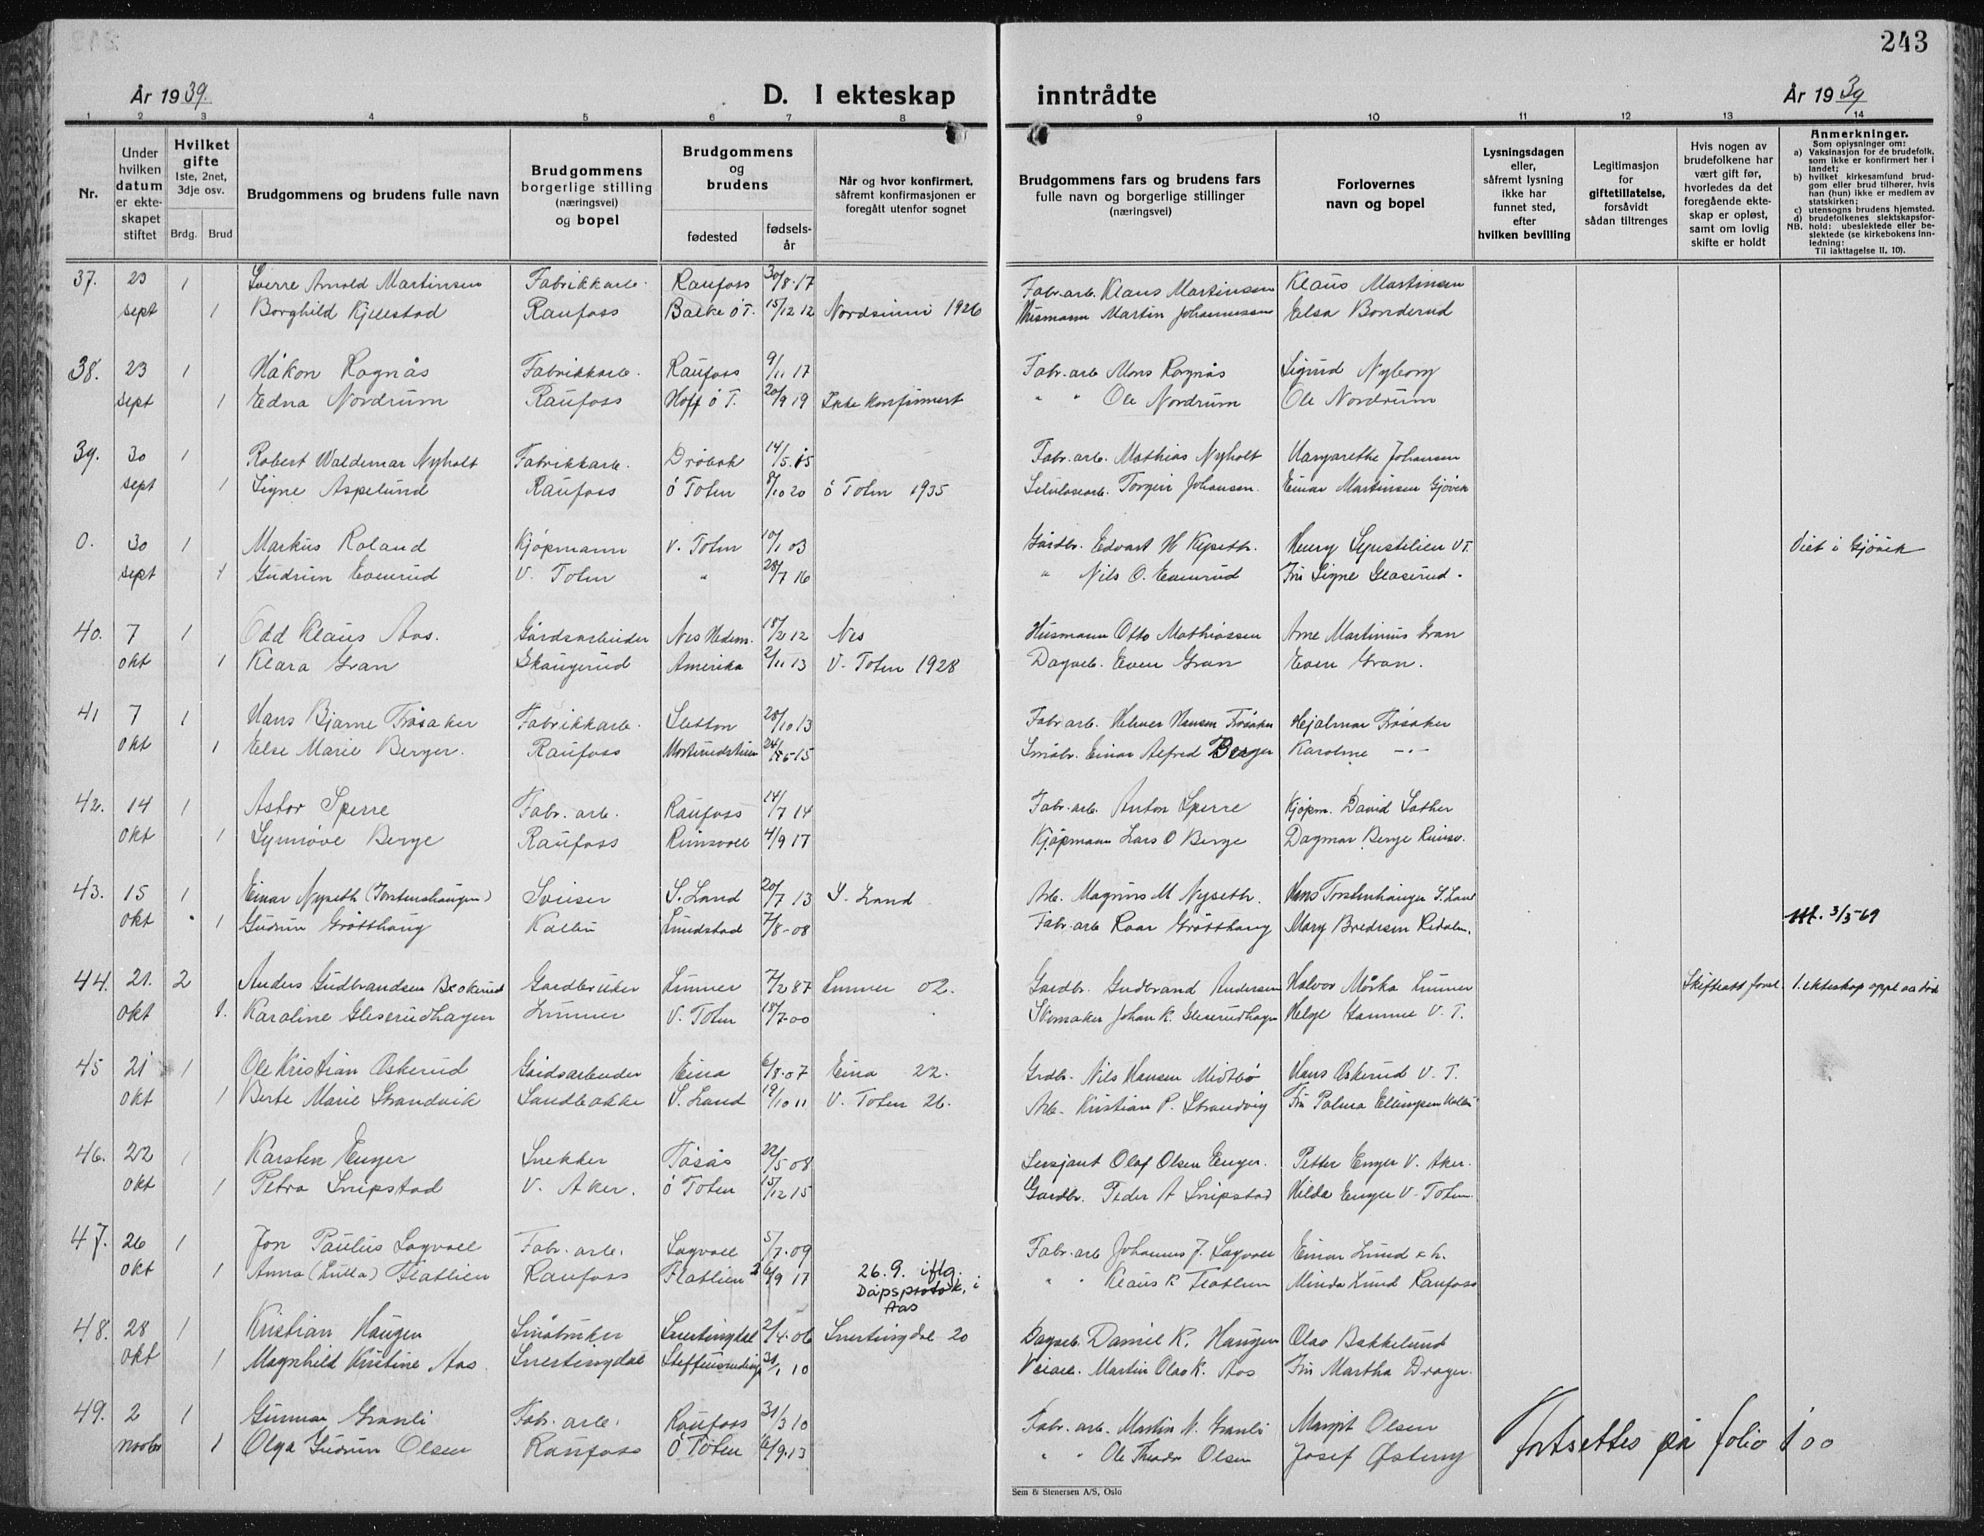 243
År 1939.
D. I ekteskap inntrådte
År 1939
1 2 3 4 5 6 7 8 9 10 11 12 13 14
Nr.
Under hvilken datum er ekteskapet stiftet
Hvilket gifte
1ste, 2net, 3dje osv.
Brdg. Brud
Brudgommens og brudens fulle navn
Brudgommens borgerlige stilling (næringsvei) og bopel
Brudgommens og brudens
fødested
fødselsår
Når og hvor konfirmert, såfremt konfirmasjonen er foregått utenfor sognet
Brudgommens fars og brudens fars fulle navn og borgerlige stillinger (næringsvei)
Forlovernes navn og bopel
Lysningsdagen eller, såfremt lysning ikke har funnet sted, efter hvilken bevilling
Legitimasjon for giftetillatelse, forsåvidt sådan tiltrenges
Hvis nogen av brudefolkene har vært gift før, hvorledes da det foregående ekteskap er opløst, samt om lovlig skifte er holdt
Anmerkninger.
Som oplysninger om:
a) Vaksinasjon for de brudefolk, som ikke er konfirmert her i landet;
b) hvilket kirkesamfund brudgom eller brud tilhører, hvis han (hun) ikke er medlem av statskirken;
c) utensogns brudens hjemsted.
d) brudefolkenes slektskapsforhold: ubeslektede eller beslektede (se kirkebokens Innledning:
NB. Til iakttagelse II. 10).
37. 23 1 Sverre Arnold Martinsen Fabrikkarb. Raufoss 30/8-17 Fabr.arb. Klaus Martinsen Klaus Martinsen
sept 1 Borghild Kjelestad Raufoss Balke ØT. 15/12 12 Nordsinni 1926 Husmann Martin Johannessen Elsa Bonderud
38. 23 1 Håkon Rognås Fabrikkarb. Raufoss 9/11 17 Fabr.arb. Mons Rognås Sigrud Nyborg
sept 1 Edna Nordrum Raufoss Hoff ØT. 20/9 19 Ikke konfirmert " " Ole Nordrum Ole Nordrum
39. 30 1 Robert Waldemar Nyholt Fabrikkarb. Drøbak 14/5.15 Fabr.arb. Mathias Nyholt Margarethe Johansen
sept 1 Signe Aspelund Raufoss Ø Toten 8/10 20 Ø Toten 1935 Celulosearb. Torgeir Johansen Einar Martinsen Gjøvik
0. 30 1 Markus Roland Kjøpmann V. Toten 10/1 03 Gårdbr. Edvart H Kipseth. Henry Sepstilien V.T. Viet i Gjøvik
sept 1 Gudrun Evenrud V. Toten " 28/7 16 " Nils O. Evenrud Fru Signe Glæserud "
40. 7 1 Odd Klaus Aas. Gårdsarbeider Nes Hedm. 18/2 12 Nes Husmann Otto Mathiassen Arne Martinius Gran
okt 1 Klara Gran Skaugerud Amerika 2/11 13 V. Toten 1928 Dagarb. Even Gran Even Gran.
41 7 1 Hans Bjarne Frøsaker Fabrikkarb. Sletten 20/10 13 Fabr.arb. Helmer Hansen Frøsaker Hjalmar Frøsaker
okt 1 Else Marie Berger. Raufoss 15 Småbr. Einar Alfred Berger Karoline -"-
42. 14 1 Astor Sperre Fabr. arb. Raufoss 14/7 14 Fabr.arb. Anton Sperre Kjøpm. David Sæther
okt 1 Synnøve Berge Raufoss Reinsvoll 4/9 17 Kjøpmann Lars O Berge Dagmar Berge Reinsv.
43. 15 1 Einar Nyseth (Torstenshaugen) Sveiser S. Land 20/7 13 S. Land Arb. Magnus M Nyseth. Hans Torstenhaugen S. Land
okt 1 Gudrun Grøtthaug Kolbu Lundstad 7/8-08 Fabr. arb Roar Grøtthaug Mary Bredesen Redalen. utt. 3/5-69
44. 21. 2 Anders Gudbrandsen Beokerud Gardbruker Lunner 7/2 87 Lunner 02. Gardbr. Gudbrand Andersen Halvor Mørka Lunner Skifteatt forel. 1. ekteskap oppl. ved død
okt 1. Karoline Gleserudhagen Lunner V. Toten 18/7-00 Skomaker Johan K. Gleserudhagen Helge Hamme V. T.
45 21 1 Ole Kristian Øskerud Gårdsarbeider Eina 6/8-07 Eina 22. Grdbr. Nils Hansen Midtbø Hans Øskerud V. T.
okt 1 Berte Marie Strandvik Sandbakke S. Land 19/10 11 V. Toten 26. Arb. Kristian P. Strandvig Fru Palma Ellingsen Kolbu
46. 22 1 Karsten Enger Snekker Tåsås 22/5 08 Sersjant Olaf Olsen Enger. Petter Enger V. Aker.
okt 1 Petra Snipstad V. Aker. Ø Toten 15/12 15 Gardbr. Peder A Snipstad Hilda Enger V. Toten
47. 26 1 Jon Paulus Sagvoll Fabr. arb. Sagvoll 5/7-09 Fabr. arb Johannes J. Sagvoll Einar Lund
okt 1 Anna (Lulla) Flatlien Raufoss Flatlien 26/9 17 26.9. iflg. Dåpsprotok. i Aas " " Klaus K Flatlien Minda Lund Raufoss
48. 28 1 Kristian Haugen Småbruker Snertingdal 2/4-06 Snertingdal 20 Dagarb. Daniel K. Haugen Olav Bakkelund
okt 1 Magnhild Kristine Aas. Snertingdal 31/1 10 Veiarb. Martin Olav K. Aas Fru Martha Drager.
49. 2 1 Gunnar Granli Fabr. arb. Raufoss 31/3 10 Fabr. arb. Martin N. Granli Margit Olsen
novbr 1 Olga Gudrun Olsen Raufoss Ø Toten 6/9.13 " " Ole Theodor Olsen Josef Østeng
Fortsettes på folio 100
Sem & Stenersen A/S, Oslo